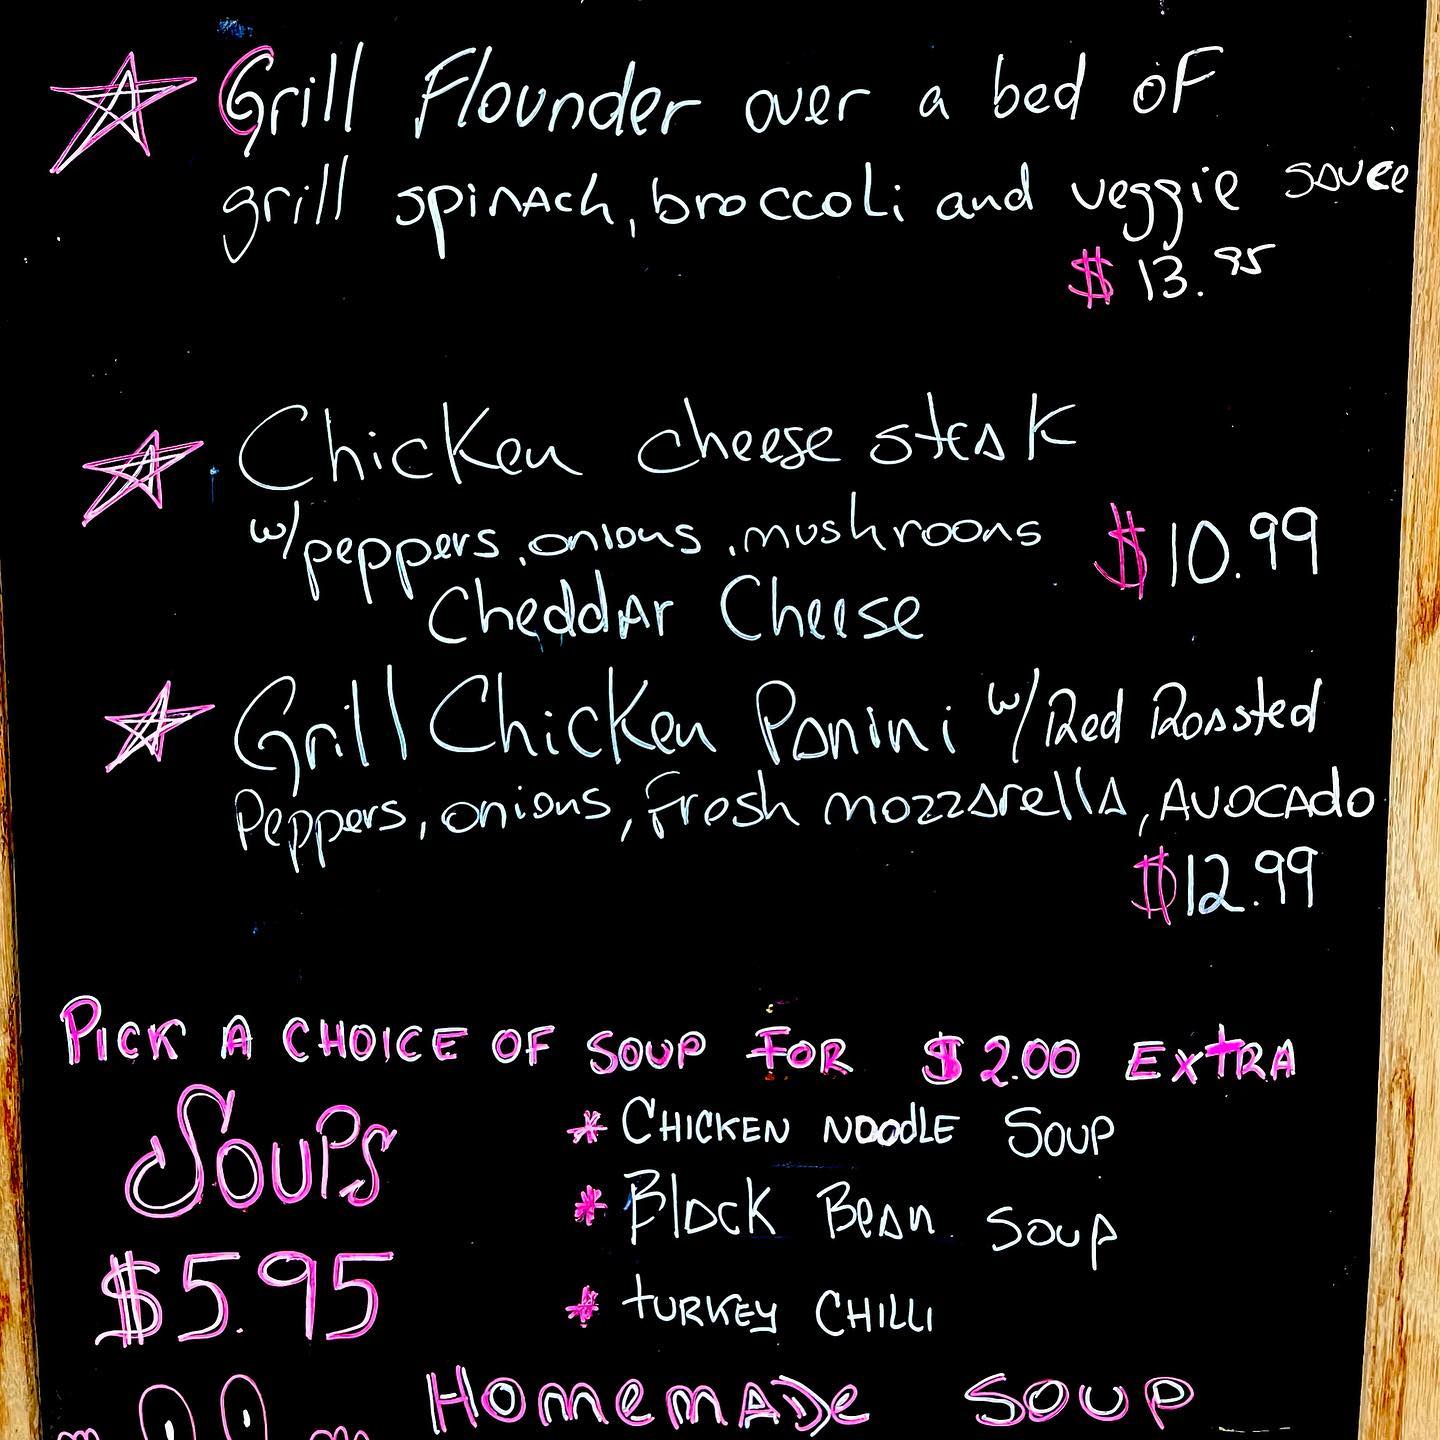 Grill Flounder over a bed of
grill spinach, broccoli and veggie sauce
$ 13.95
Chicken cheese steak
w/peppers, onions, mushroons
$10.99
Cheddar Cheese
Grill Chicken Panini w/Red Roasted
Peppers, onions, fresh mozzarella, Avocado
$12.99
PICK A CHOICE OF SOUP FOR $2.00 EXTRA
Soups
* CHICKEN NOODLE SOUP
* Black Bean Soup
$5.95
* TURKEY CHILLI
Homemade Soup